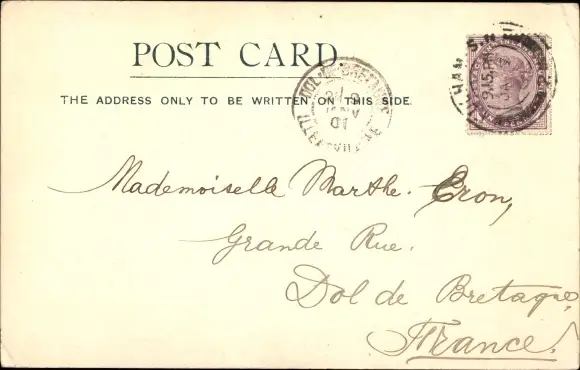 POST CARD
THE ADDRESS ONLY TO BE WRITTEN ON THIS SIDE.
DOL-DE-BRETAGNE
01
ILLE-ET-VILAINE
HAM S.
9.15.P
Mademoiselle Marthe. Cron,
Grande Rue.
Dol de Bretagne
France.